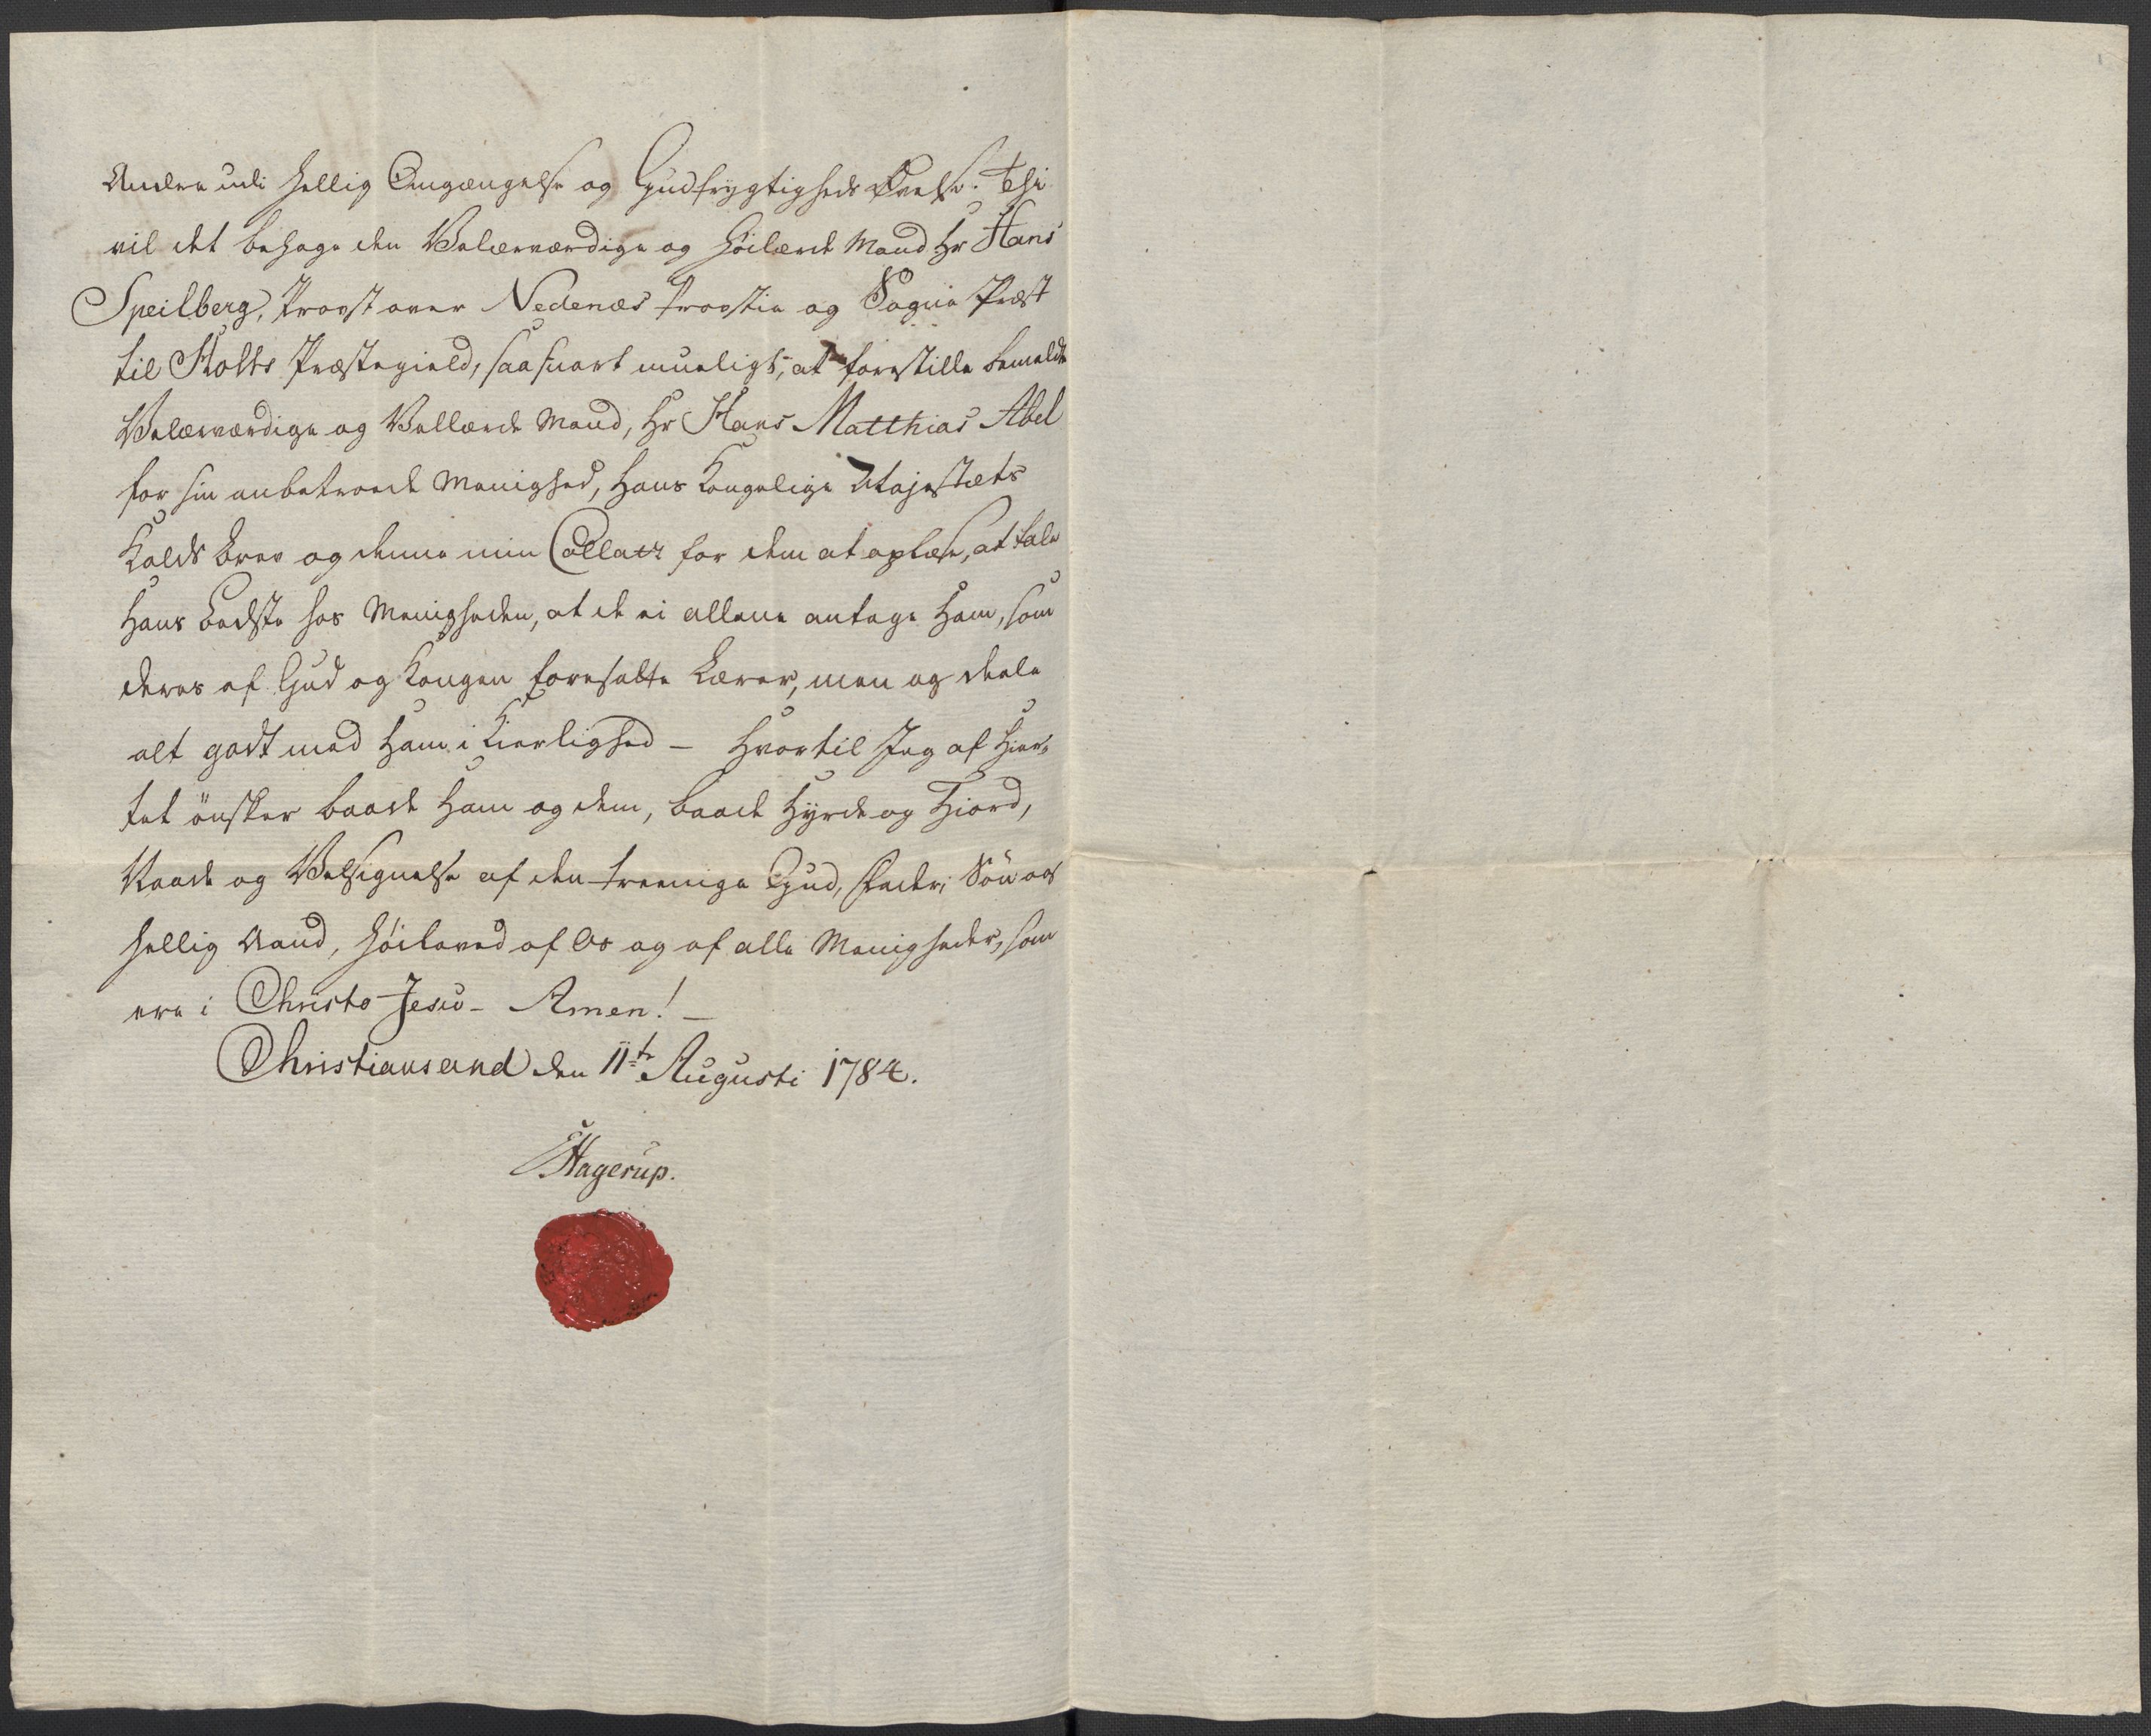 Andre udi hellig Omgængelse og Gudfrygtigheds Øvelse. Thi
vil det behage den Velærværdige og Høilærde Mand Hr Hans
Speilberg, Provst over Nedenæs Provstie og Sogne Præst
til Holts Præstegield, saasnart mueligt, at forestille bemeldte
Velærværdige og Vellærde Mand, Hr Hans Matthias Abel
for sin anbetroede Menighed, Hans Kongelige Majestæts
Kalds Brev og denne min Collatz for dem at oplæse, at tale
Hans Bedste hos Menigheden, at de ei allene antage Ham, som
deres af Gud og Kongen foresatte Lærer, men og deele
alt godt med Ham i Kierlighed – Hvortil Jeg af Hier-
tet ønsker baade Ham og dem, baade Hyrde og Hiord,
Naade og Velsignelse af den treenige Gud, Fader, Søn og
hellig Aand, Høiloved af Os og af alle Menigheder, som
ere i Christo Jesu – Amen! –
Christiansand den 11te Augusti 1784.
Hagerup.